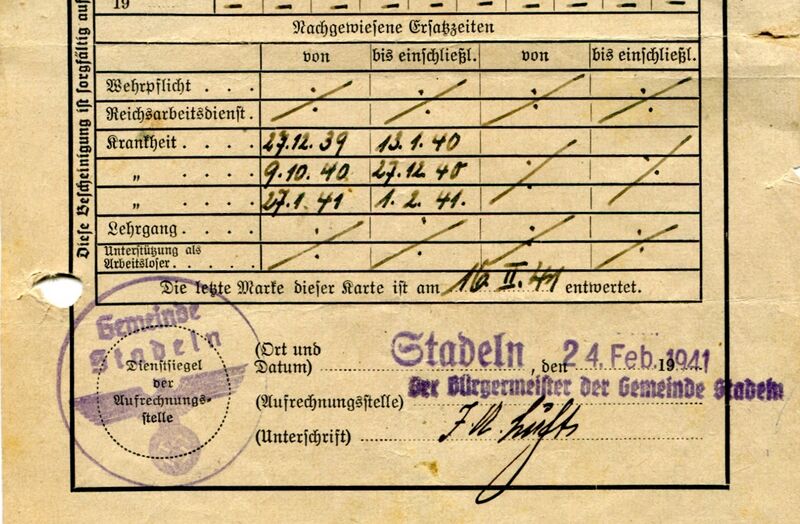 19
Diese Bescheinigung ist sorgfältig auf
Nachgewiesene Ersatzzeiten
von bis einschließl. von bis einschließl.
Wehrpflicht . . .
Reichsarbeitsdienst.
Krankheit . . . . 27.12.39 13.1.40
„ . . . . 9.10.40 27.12.40
„ . . . . 27.1.41 1.2.41.
Lehrgang . . . .
Unterstützung als
Arbeitsloser . . . .
Die letzte Marke dieser Karte ist am 16. II. 41 entwertet.
Gemeinde
Stadeln
Dienstsiegel
der
Aufrechnungs-
stelle
(Ort und
Datum) Stadeln, den 24. Feb. 1941
Der Bürgermeister der Gemeinde Stadeln
(Aufrechnungsstelle)
(Unterschrift)